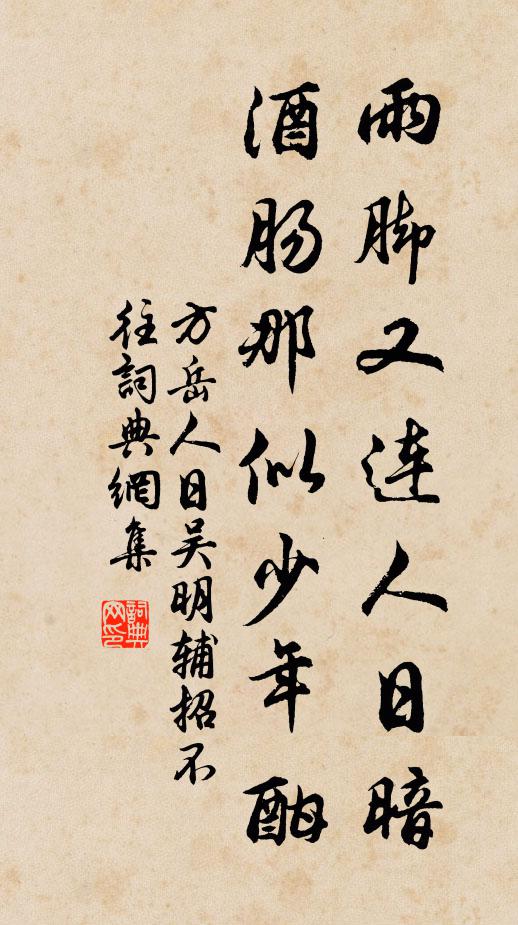 雨脚又連人日暗
酒腸那似少年酣
方岳人日吴明輔招不
往詞典網集
詞典網印